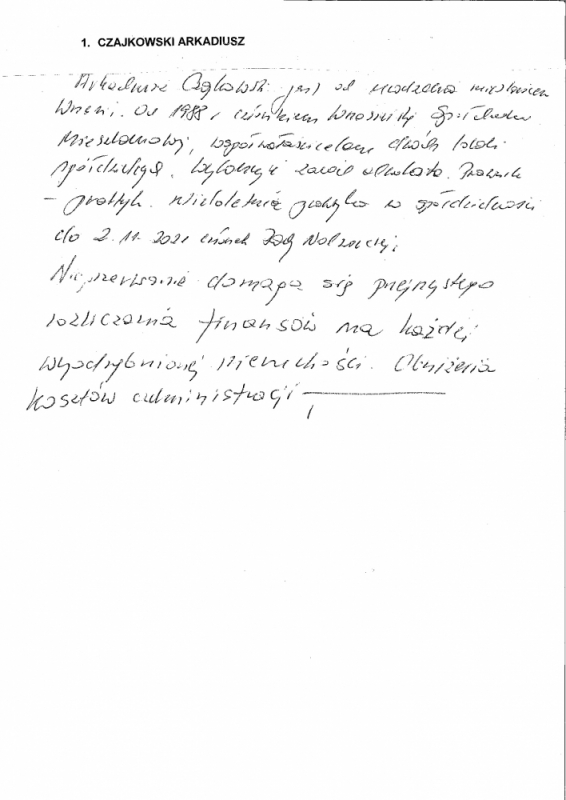 1. CZAJKOWSKI ARKADIUSZ
Arkadiusz Czajkowski jest od urodzenia mieszkańcem
Wrześni. Od 1988 r członkiem Wrzesińskiej Spółdzielni
Mieszkaniowej, współwłaścicielem dwóch lokali
spółdzielczych. zawód adwokata. Prawnik
- praktyk. Wieloletnia praktyka w spółdzielczości
do 2.11.2021 członek Rady Nadzorczej,
Nieprzerwanie domaga się przejrzystego
rozliczania finansów na każdej
wyodrębnionej nieruchości. Obniżenia
kosztów administracji